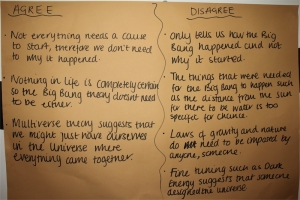 AGREE
• Not everything needs a cause
to start, therefore we don't need
to why it happened.
• Nothing in life is completely certain
so the Big Bang theory doesn't need
to be either.
• Multiverse theory suggests that
we might just have ourselves
in the Universe where
everything came together.
DISAGREE
• Only tells us how the Big
Bang happened and not
why it started.
• The things that were needed
for the Big Bang to happen such
as the distance from the sun
for there to be water is too
specific for chance.
• Laws of gravity and nature
do need to be imposed by
anyone, someone.
• Fine tuning such as Dark
Energy suggests that someone
designed the universe